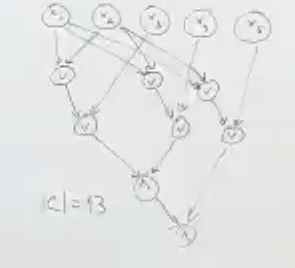 x₁ x₂ x₃ x₄ x₅
∨ ∨ ∨
∨ ∨ ∨
∧
∧
|C| = 13